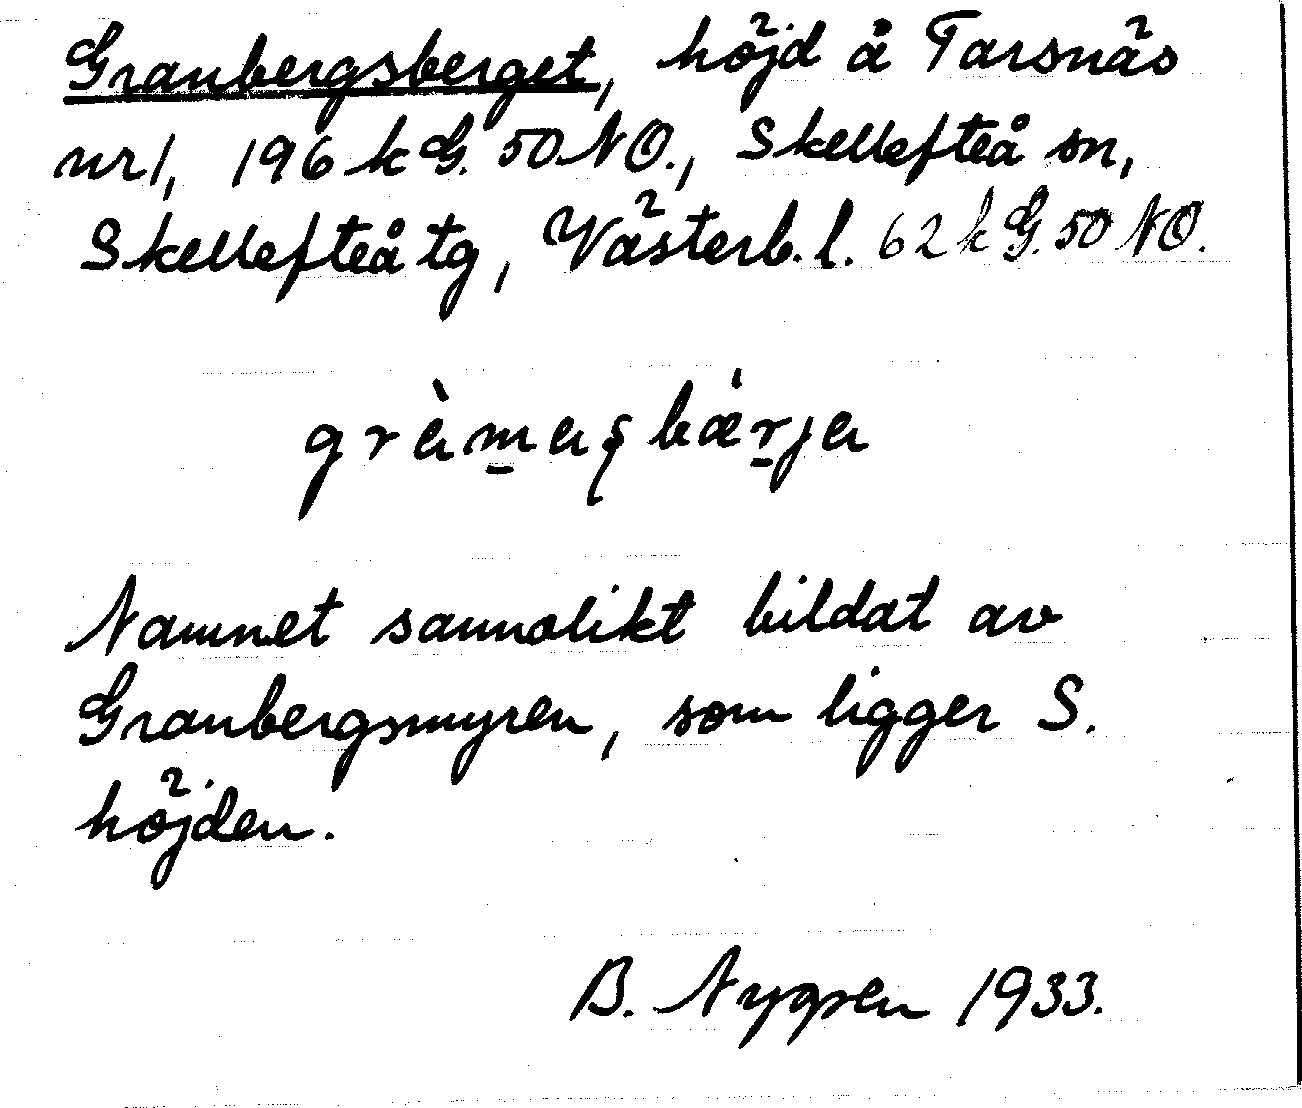 Granbergsberget, höjd å Tarsnäs
nr 1, 196 k G. 50 NO., Skellefteå sn,
Skellefteå tg, Västerb. l. 62 k G. 50 NO.
Namnet sannolikt bildat av
Granbergsmyren, som ligger S.
höjden.
B. Nygren 1933.